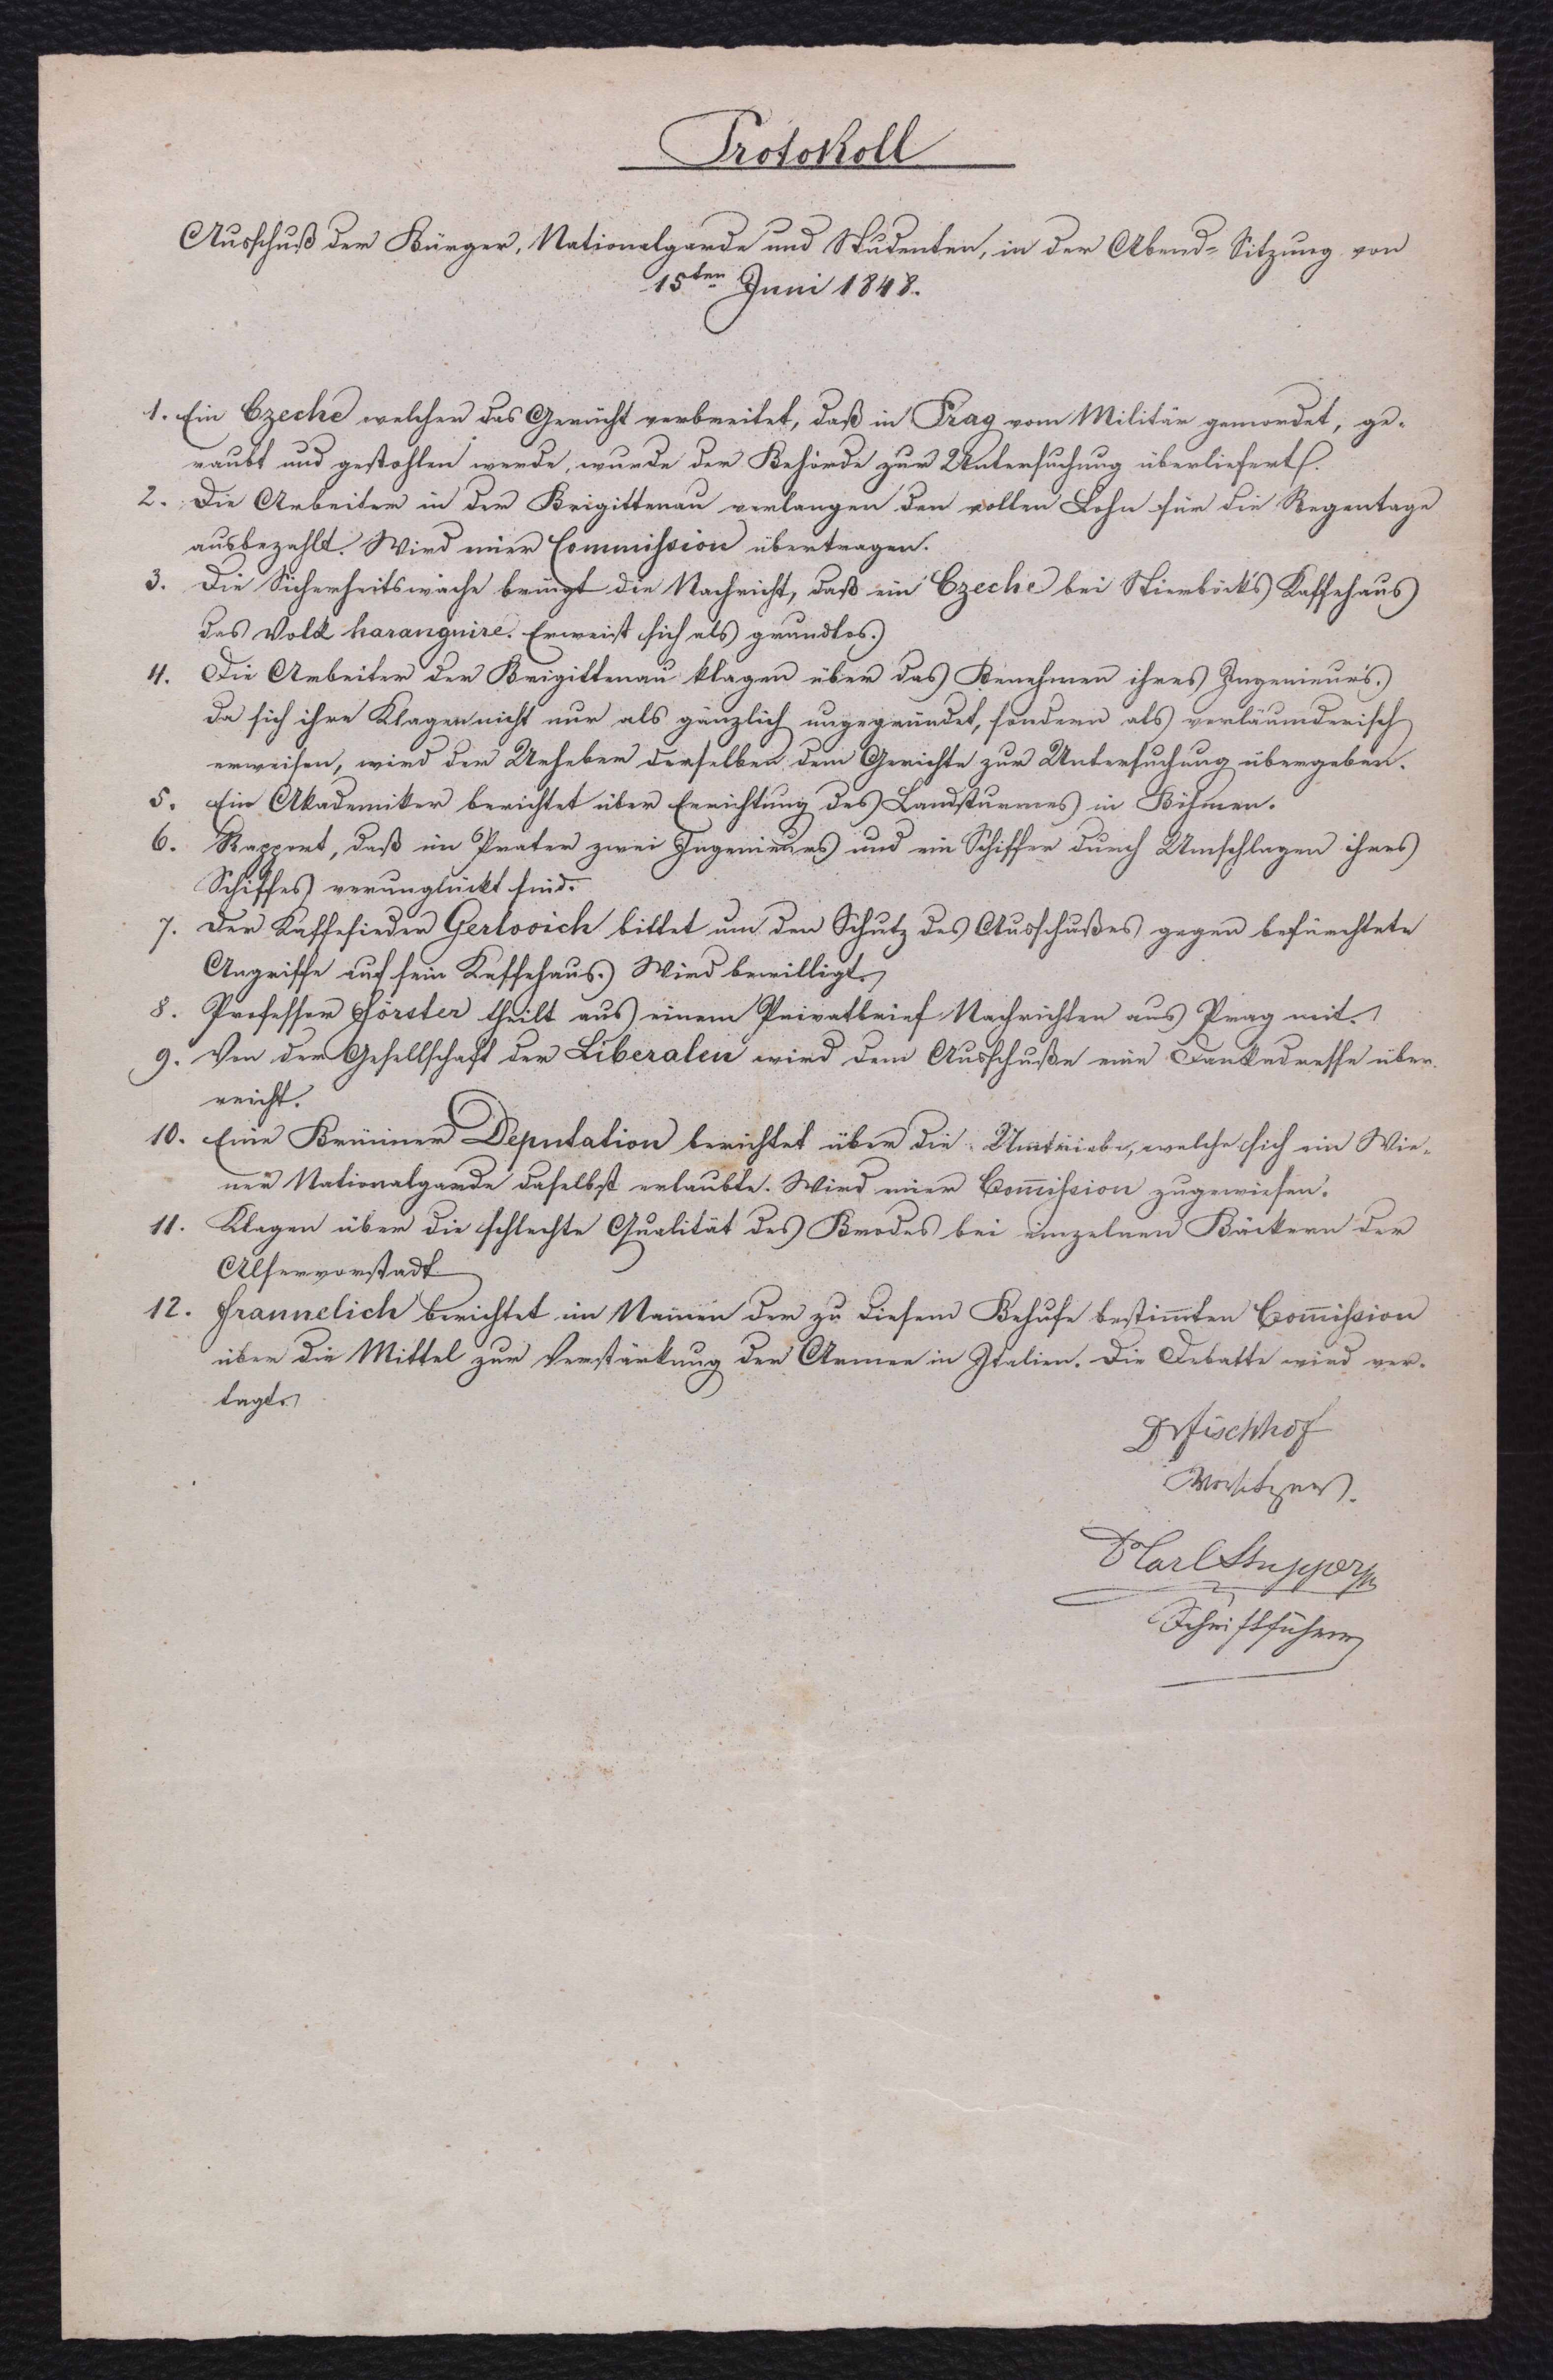 Protokoll
Ausschuß der Bürger, Nationalgarde und Studenten, in der Abend-Sitzung von
15ten Juni 1848.
1. Ein Czeche welcher das Gerücht verbreitet, daß in Prag vom Militär gemordet, ge-
raubt und gestohlen werde, wurde der Behörde zur Untersuchung überliefert.
2. Die Arbeiter in der Brigittenau verlangen den vollen Lohn für die Regentage
ausbezahlt. Wird einer Commission übertragen.
3. Die Sicherheitswache bringt die Nachricht, daß ein Czeche bei Stierböck's Kaffehaus
das Volk haranguire. Erweist sich als grundlos.
4. Die Arbeiter der Brigittenau klagen über das Benehmen ihres Ingenieurs.
da sich ihre Klagen nicht nur als gänzlich ungegründet, sondern als verläumderisch
erweisen, wird der Urheber derselben dem Gerichte zur Untersuchung übergeben.
5. Ein Akademiker berichtet über Errichtung des Landsturmes in Böhmen.
6. Rapport, daß im Prater zwei Ingenieurs und ein Schiffer durch Umschlagen ihres
Schiffes verunglückt sind.
7. Der Kaffesieder Gerlovich bittet um den Schutz des Ausschußes gegen befürchtete
Angriffe auf sein Kaffehaus. Wird bewilligt.
8. Professor Förster theilt aus einem Privatbrief Nachrichten aus Prag mit.
9. Von der Gesellschaft der Liberalen wird dem Ausschuße eine Dankadresse über-
reicht.
10. Eine Brünner Deputation berichtet über die Umtriebe, welche sich ein Wie-
ner Nationalgarde daselbst erlaubte. Wird einer Com̅ission zugewiesen.
11. Klagen über die schlechte Qualität des Brodes bei einzelnen Bäckern der
Alservorstadt
12. Frannelich berichtet im Namen der zu diesem Behufe bestim̅ten Com̅ission
über die Mittel zur Verstärkung der Armee in Italien. Die Debatte wird ver-
tagt.
Dr Fischhof
Vorsitzer.
Dr Carl
Schriftführer